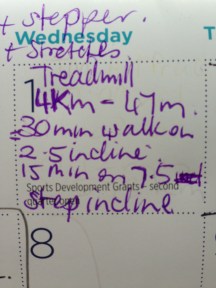 + stepper.
Wednesday
+ Stretches.
Treadmill
4Km - 47m.
= 30 min walk on
2.5 incline.
15 min on 7.5
Sports Development Grants - second
quarter
step incline
8